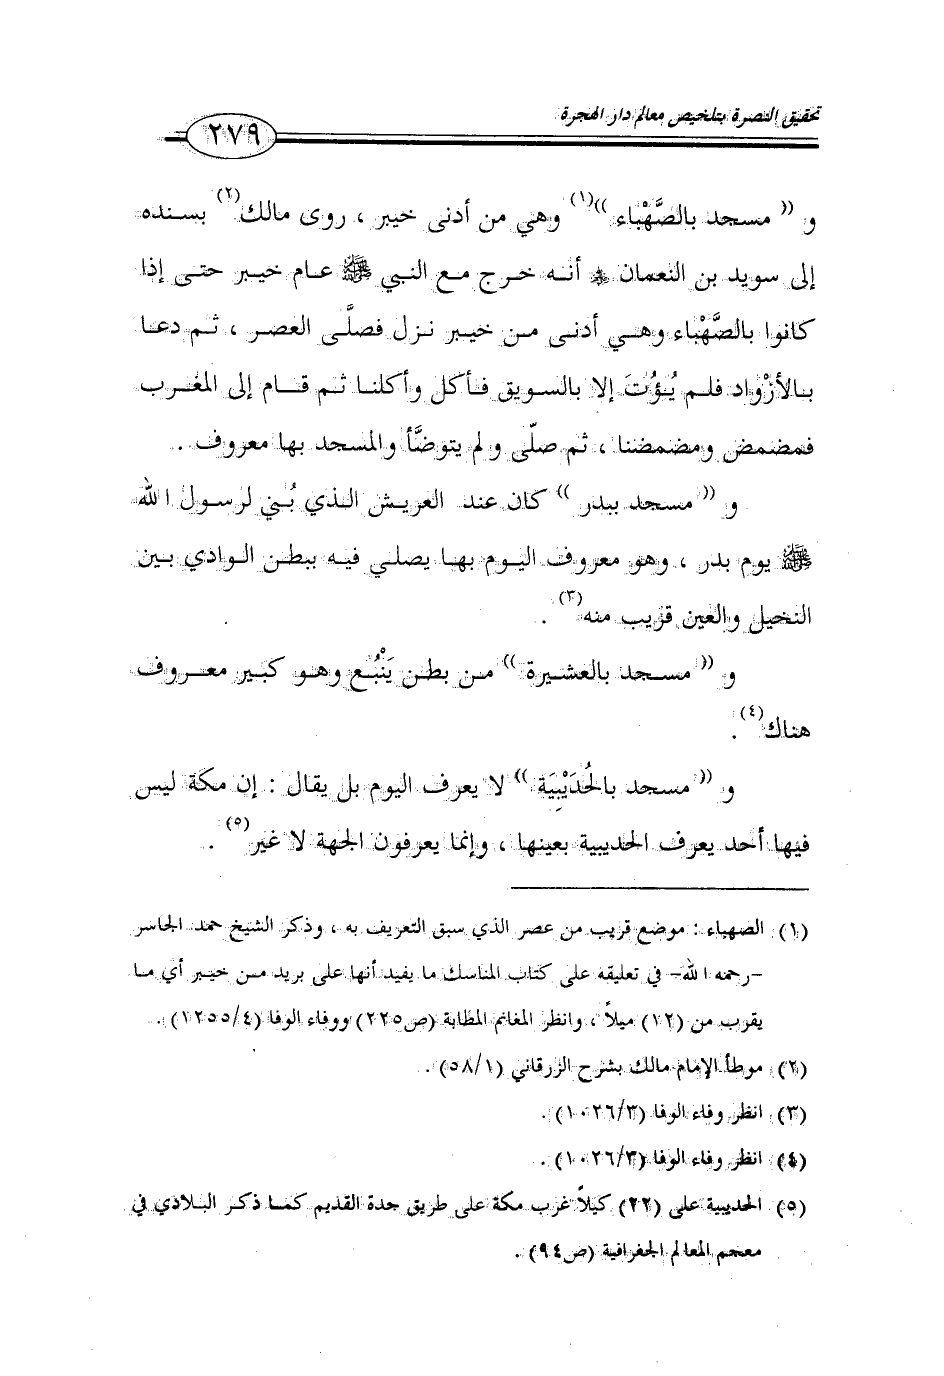 تحقيق النصرة بتلخيص معالم دار الهجرة
٢٧٩
و (( مسجد بالصَّهْبَاء ))(١) وهي من أدنى خيبر ، روى مالك(٢) بسنده
إلى سويد بن النعمان ﷺ أنه خرج مع النبي ﷺ عام خيبر حتى إذا
كانوا بالصَّهْبَاء وهي أدنى من خيبر نزل فصلَّى العصر ، ثم دعا
بالأزْواد فلم يُؤْتَ إلا بالسويق فأكل وأكلنا ثم قام إلى المغرب
فمضمض ومضمضنا ، ثم صلّى ولم يتوضَّأ والمسجد بها معروف .
و (( مسجد ببدر )) كان عند العريش الذي بُني لرسول الله
ﷺ يوم بدر ، وهو معروف اليوم بها يصلي فيه ببطن الوادي بين
النخيل والعين قريب منه(٣) .
و (( مسجد بالعشيرة )) من بطن يَنْبُع وهو كبير معروف
هناك(٤) .
و (( مسجد بالحُدَيْبِيَة )) لا يعرف اليوم بل يقال : إن مكة ليس
فيها أحد يعرف الحديبية بعينها ، وإنما يعرفون الجهة لا غير(٥) .
(١) الصهباء : موضع قريب من عصر الذي سبق التعريف به ، وذكر الشيخ حمد الجاسر
-رحمه الله- في تعليقه على كتاب المناسك ما يفيد أنها على بريد من خيبر أي ما
يقرب من (١٢) ميلاً ، وانظر المغانم المطابة (ص٢٢٥) ووفاء الوفا (١٢٥٥/٤) .
(٢) موطأ الإمام مالك بشرح الزرقاني (٥٨/١) .
(٣) انظر وفاء الوفا (١٠٢٦/٣) .
(٤) انظر وفاء الوفا (١٠٢٦/٣) .
(٥) الحديبية على (٢٢) كيلاً غرب مكة على طريق جدة القديم كما ذكر البلادي في
معجم المعالم الجغرافية (ص٩٤) .